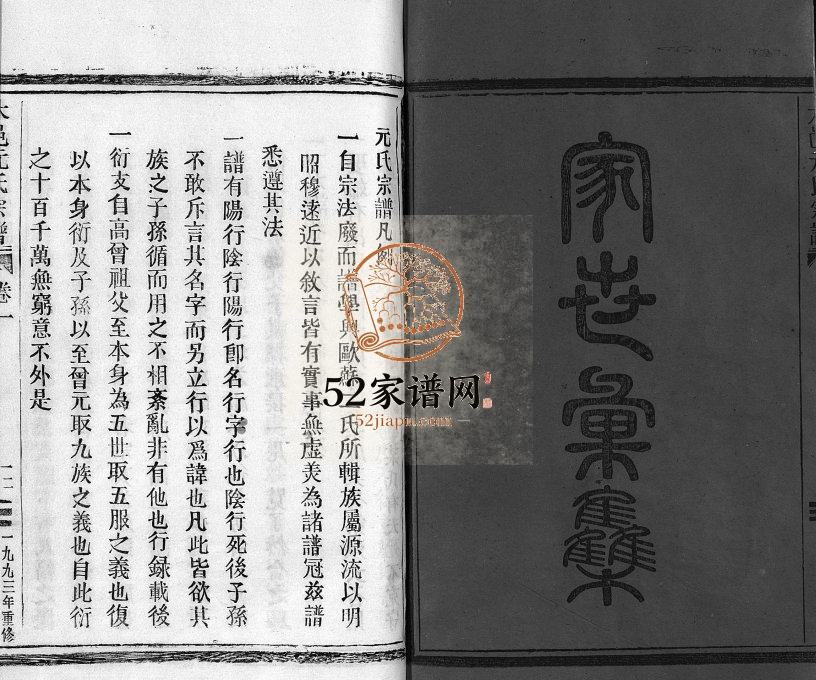 家世彙集
元氏宗譜凡例
一自宗法廢而譜學興歐蘇 氏所輯族屬源流以明
昭穆遠近以敘言皆有實事無虛美為諸譜冠兹譜
悉遵其法
一譜有陽行陰行陽行卽名行字行也陰行死後子孫
不敢斥言其名字而另立行以爲諱也凡此皆欲其
族之子孫循而用之不相紊亂非有他也行録載後
一衍支自高曾祖父至本身為五世取五服之義也復
以本身衍及子孫以至曾元取九族之義也自此衍
之十百千萬無窮意不外是
邑元氏宗譜 卷一
一九九三年重修
52家谱网
52jiapu.com